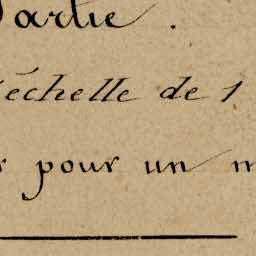 Partie.
l'échelle de 1
pour un